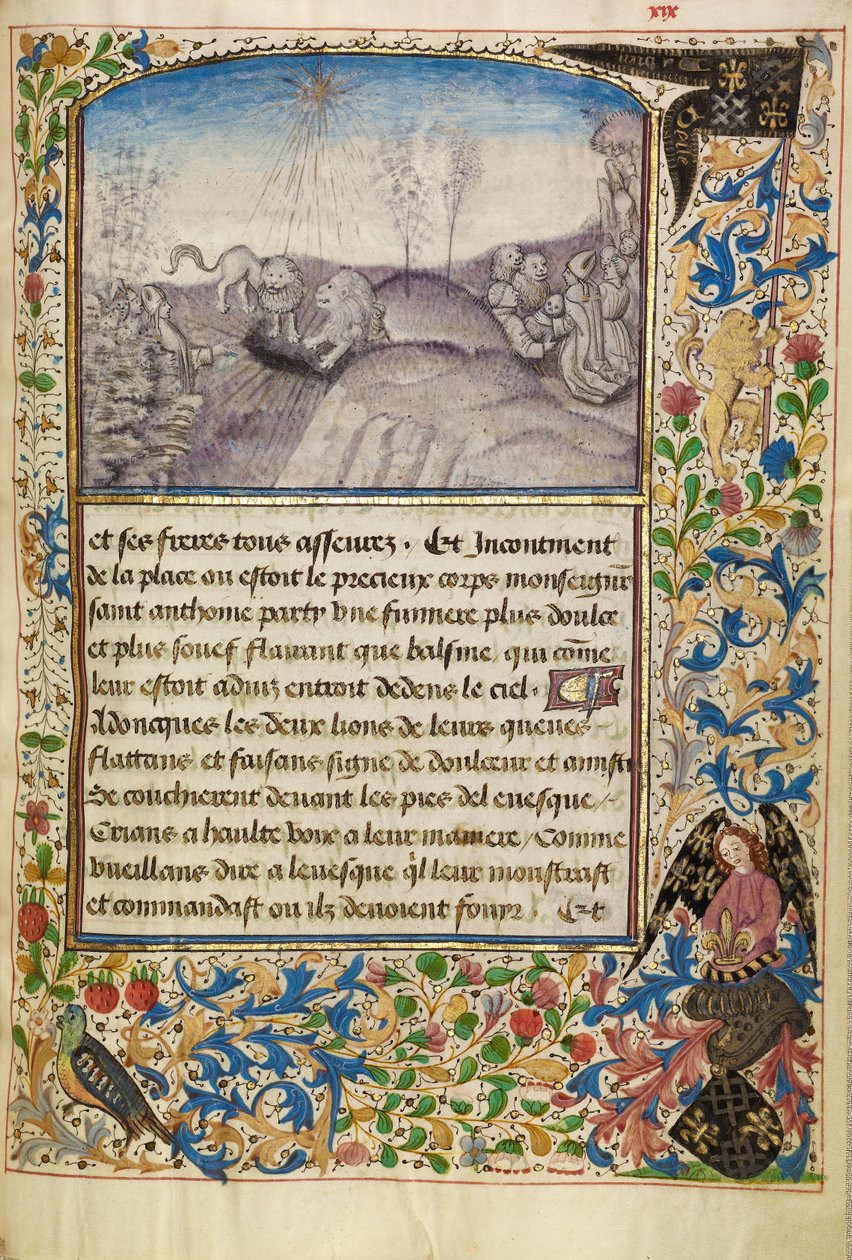 xix
Belle
et ses freres tous asseurez. Et Incontinent
de la place ou estoit le precieux corps monseigneur
saint anthoine party vne fumiere plus doulce
et plus souef flairant que balsme, qui cõme
leur estoit aduiz entroit dedens le ciel.
Adoncques les deux lions de leurs queues
flattans et faisans signe de doulceur et amistie
Se couchierent deuant les pies del euesque /
Crians a haulte voix a leur maniere / Comme
vueillans dire a leuesque q̃l leur monstrast
et commandast ou ilz deuoient fouyr. Et